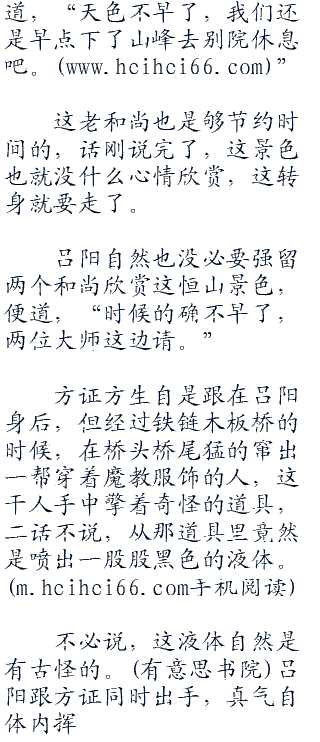 道，“天色不早了，我们还
是早点下了山峰去别院休息
吧。(www.hcihci66.com)”
这老和尚也是够节约时
间的，话刚说完了，这景色
也就没什么心情欣赏，这转
身就要走了。
吕阳自然也没必要强留
两个和尚欣赏这恒山景色，
便道，“时候的确不早了，
两位大师这边请。”
方证方生自是跟在吕阳
身后，但经过铁链木板桥的
时候，在桥头桥尾猛的窜出
一帮穿着魔教服饰的人，这
干人手中擎着奇怪的道具，
二话不说，从那道具里竟然
是喷出一股股黑色的液体。
(m.hcihci66.com手机阅读)
不必说，这液体自然是
有古怪的。(有意思书院)吕
阳跟方证同时出手，真气自
体内挥